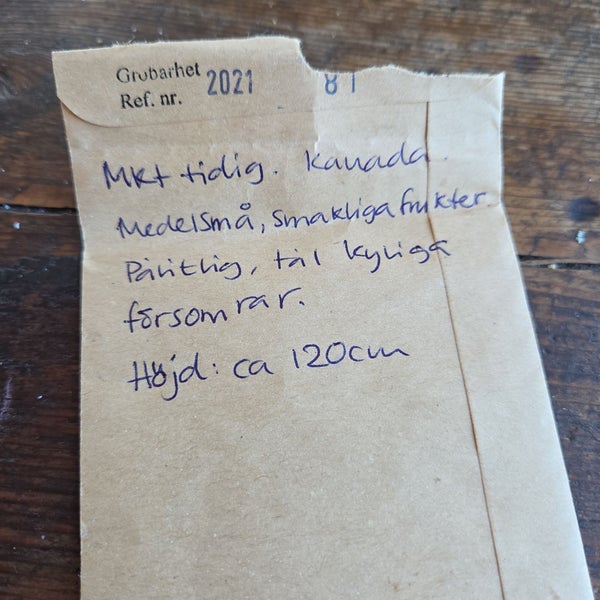 Grobarhet 2021 81
Ref. nr.
Mkt tidig. Kanada.
Medelsmå, smakliga frukter.
Pålitlig, tål kyliga
försomrar.
Höjd: ca 120cm